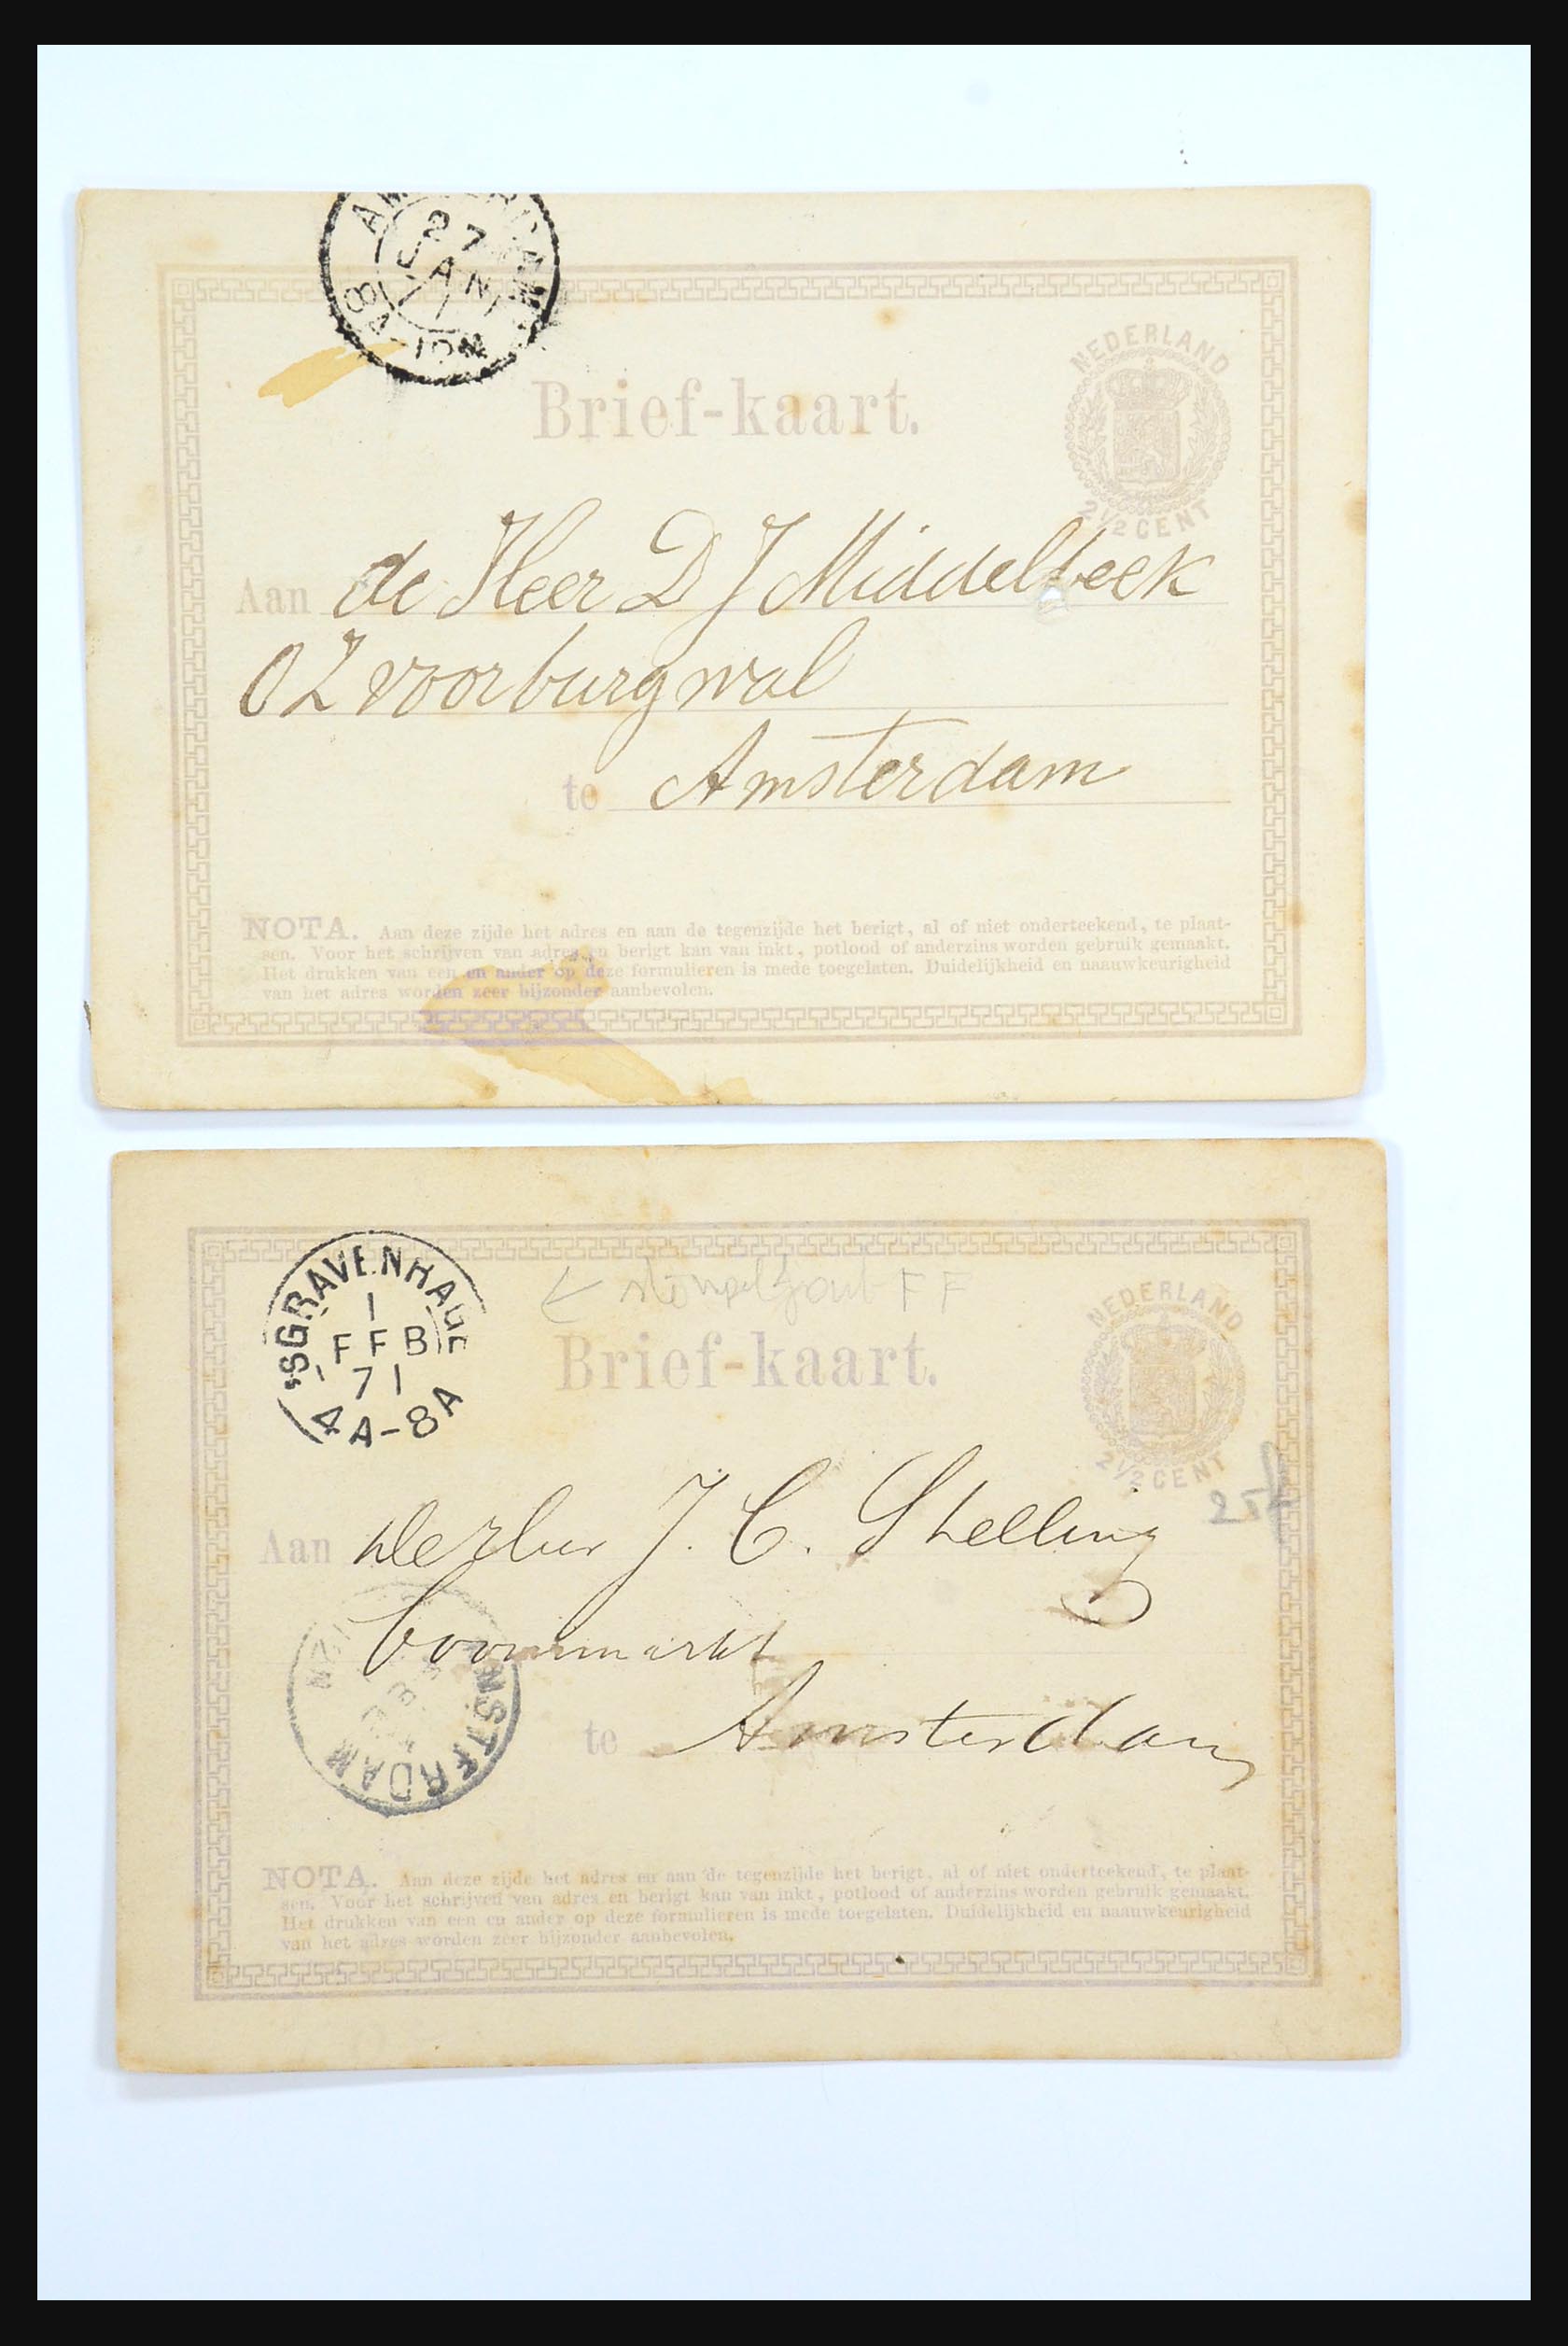 AMSTERDAM
27
JAN
71
8A-10M
Brief-kaart.
NEDERLAND
2½ CENT
Aan de Heer D J Middelbeek
OZ voorburgwal
te Amsterdam
NOTA. Aan deze zijde het adres en aan de tegenzijde het berigt, al of niet onderteekend, te plaat-
sen. Voor het schrijven van adres en berigt kan van inkt, potlood of anderzins worden gebruik gemaakt.
Het drukken van een en ander op deze formulieren is mede toegelaten. Duidelijkheid en naauwkeurigheid
van het adres worden zeer bijzonder aanbevolen.
'SGRAVENHAGE
1
FFB
71
4A-8A
← stempelfout FF
Brief-kaart.
NEDERLAND
2½ CENT
25,-
Aan J. C. Shelling
te Amsterdam
AMSTERDAM
NOTA. Aan deze zijde het adres en aan de tegenzijde het berigt, al of niet onderteekend, te plaat-
sen. Voor het schrijven van adres en berigt kan van inkt, potlood of anderzins worden gebruik gemaakt.
Het drukken van een en ander op deze formulieren is mede toegelaten. Duidelijkheid en naauwkeurigheid
van het adres worden zeer bijzonder aanbevolen.